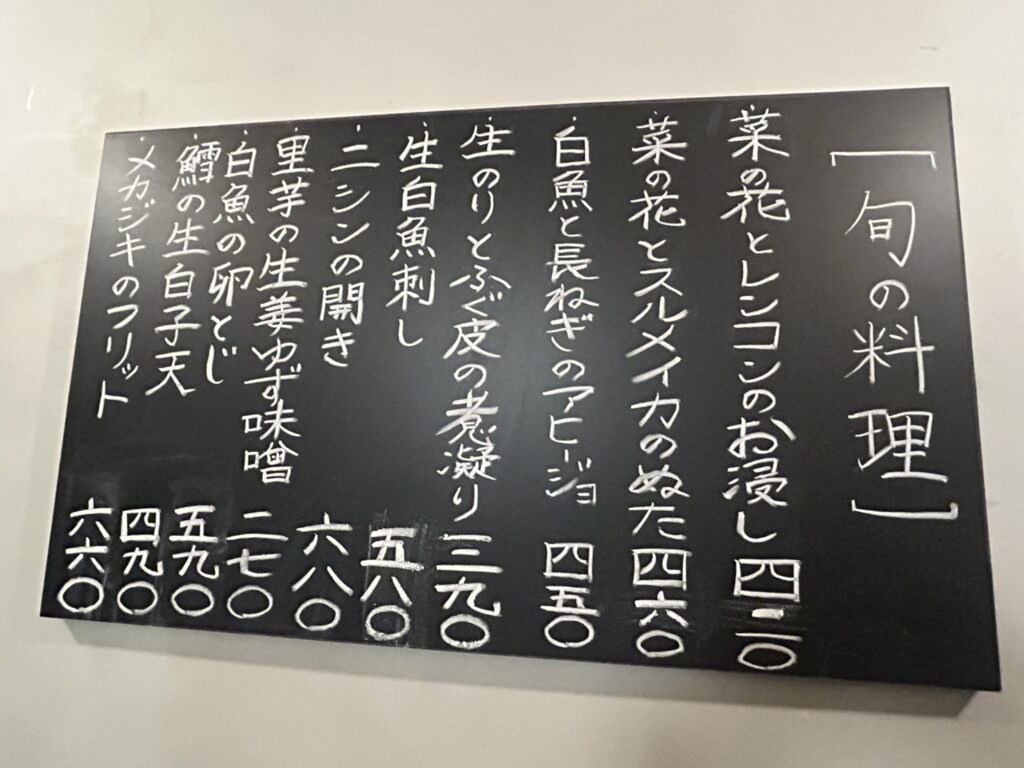 ［旬の料理］
・菜の花とレンコンのお浸し 四二〇
・菜の花とスルメイカのぬた 四六〇
・白魚と長ねぎのアヒージョ 四五〇
・生のりとふぐ皮の煮凝り 三九〇
・生白魚刺し 五八〇
・ニシンの開き 六八〇
・里芋の生姜ゆず味噌 二七〇
・白魚の卵とじ 五九〇
・鱈の生白子天 四九〇
・メカジキのフリット 六六〇